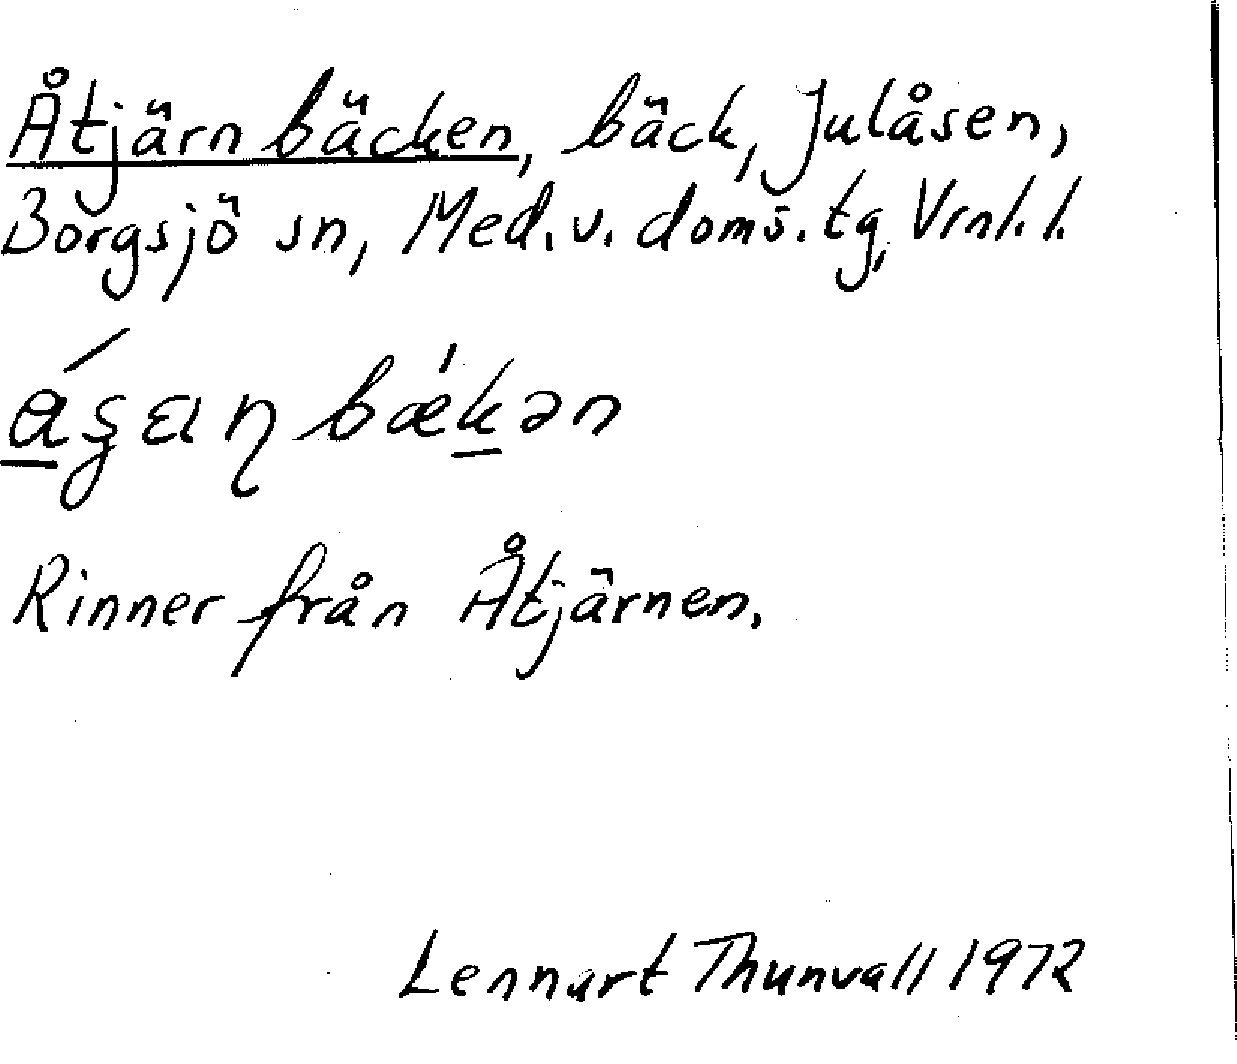 Åtjärnbäcken, bäck, Julåsen,
Borgsjö sn, Med. v. doms. tg, Vrnl. l.
bǽkən
Rinner från Åtjärnen.
Lennart Thunvall 1972